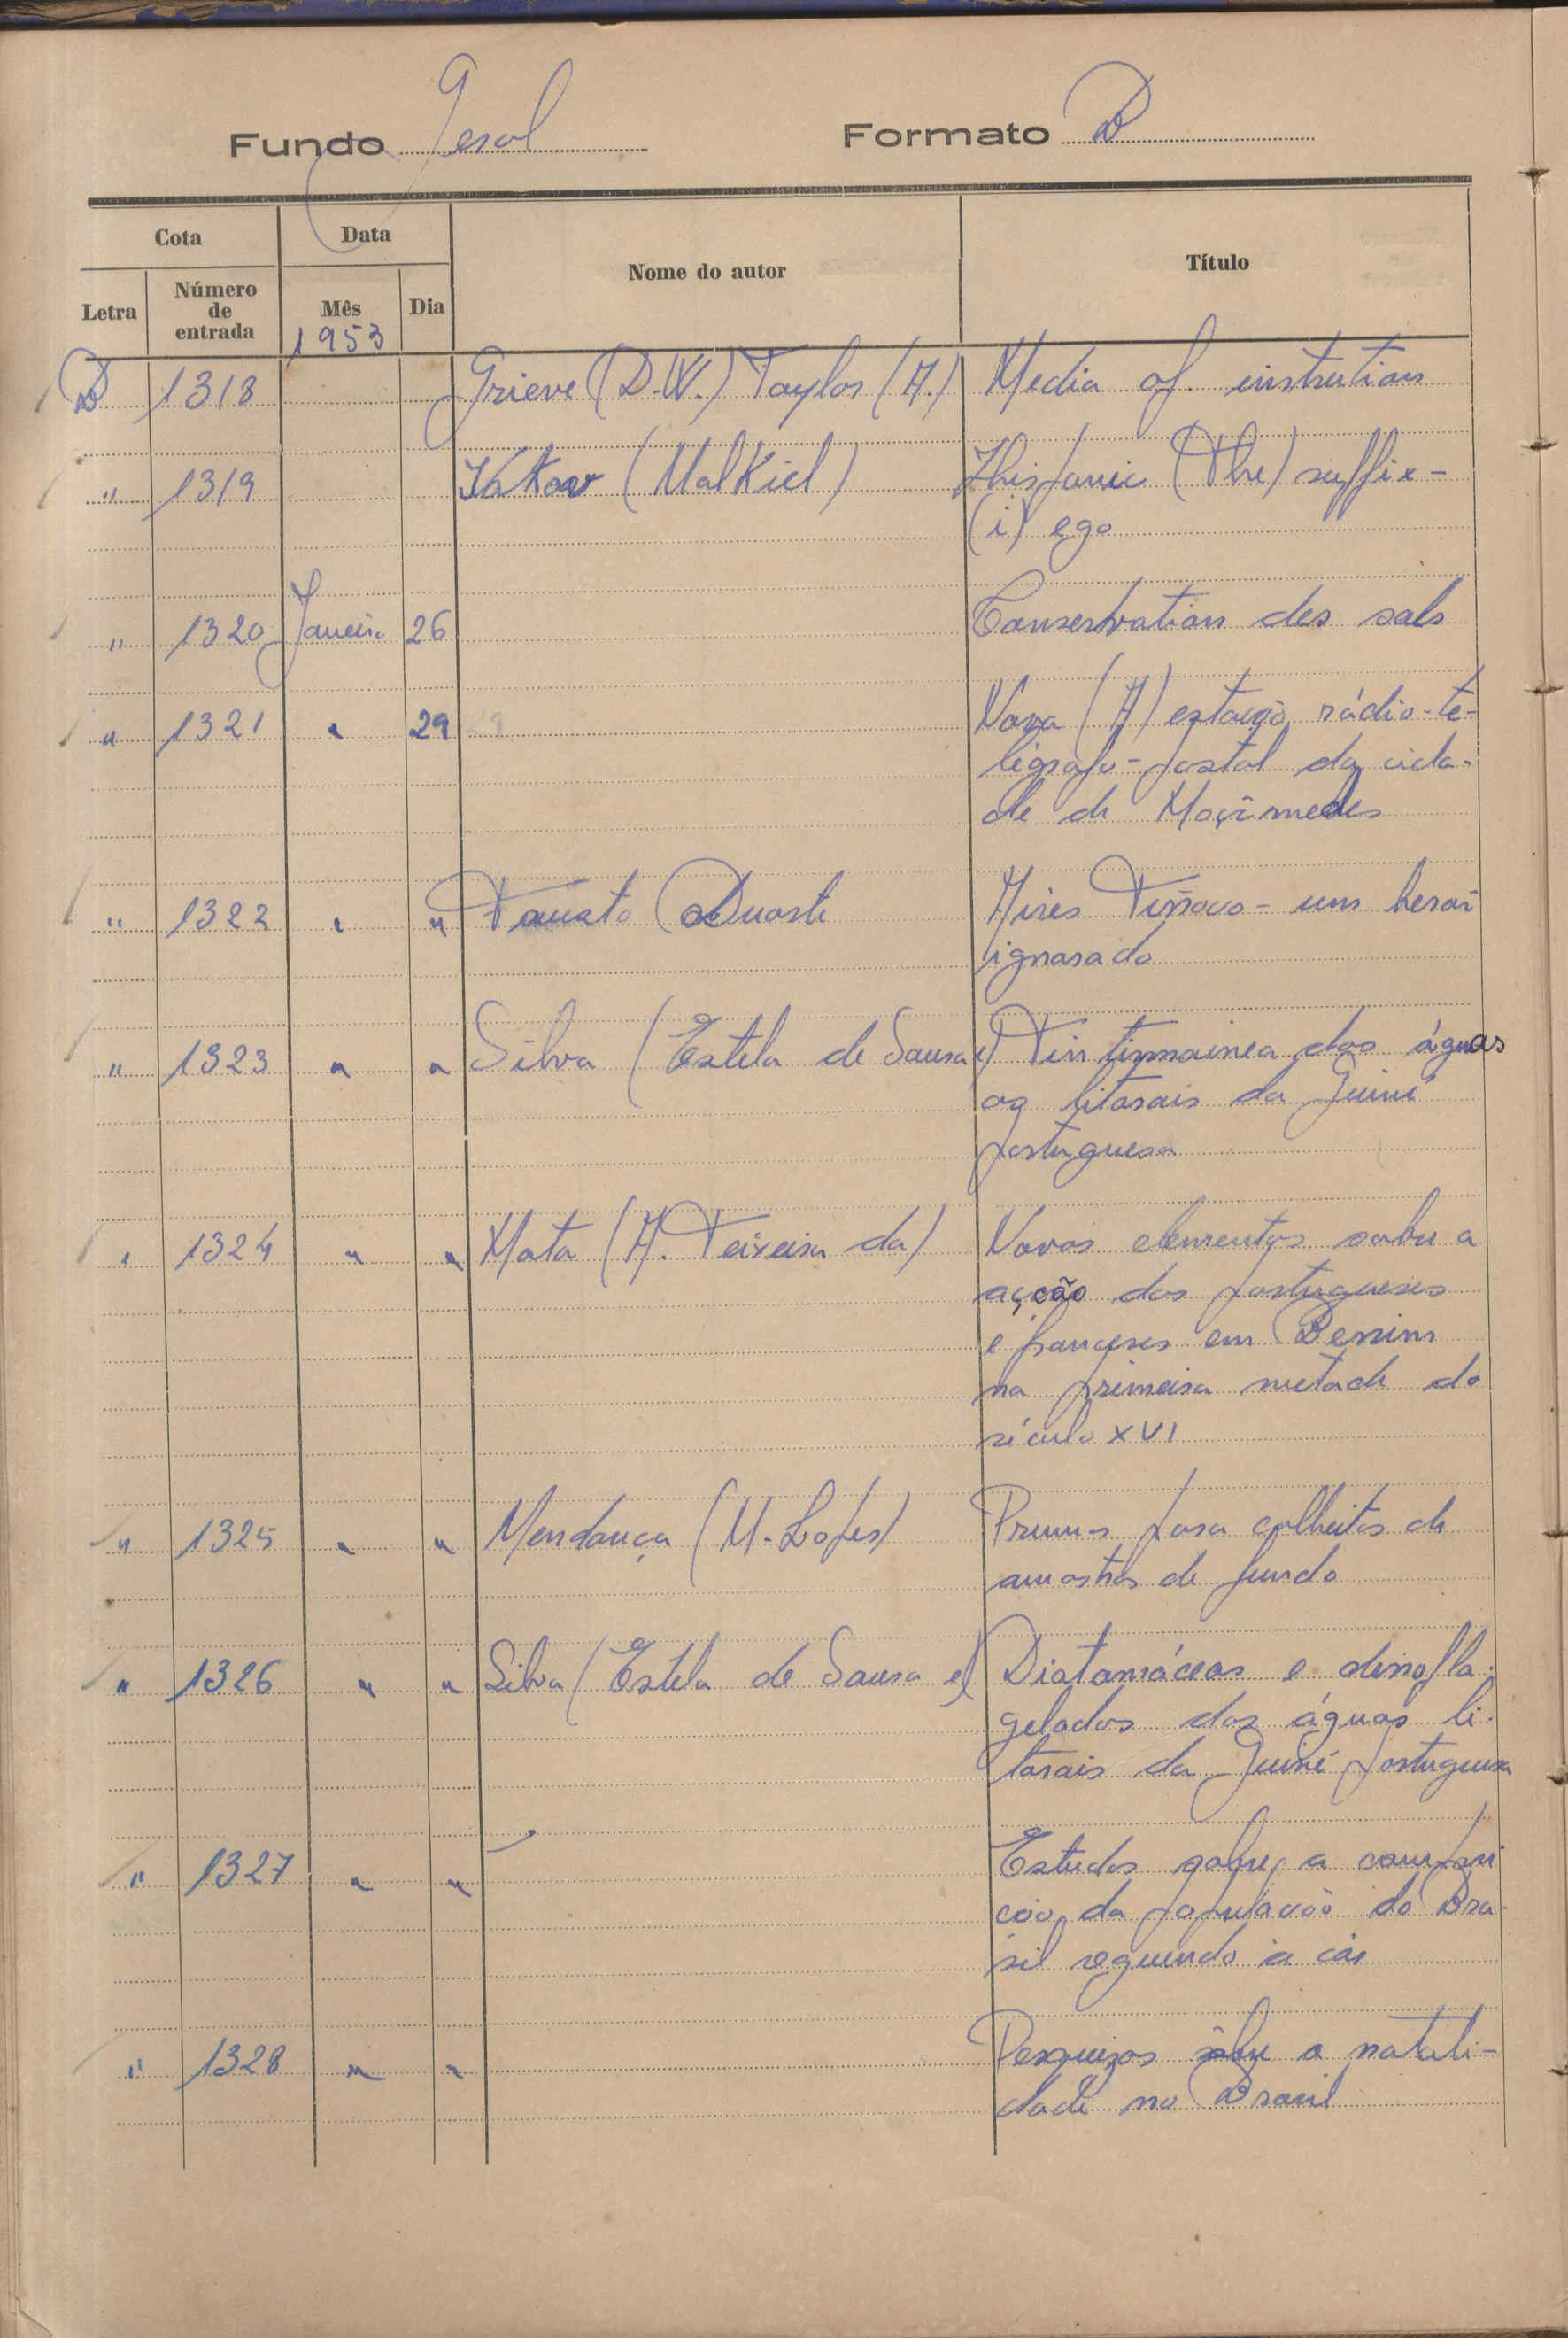 Fundo Geral Formato B
Cota Data Nome do autor Título
Letra Número de entrada Mês Dia
1953
B 1318 Grieve (D.W.) Taylor (A.) Media of instrution
" 1319 (Malkiel) Hispanic (The) suffix-
(i) ego
" 1320 Janeiro 26 Conservation des sols
" 1321 " 29 Nova (A) estação rádio-te-
légrafo-postal da cida-
de de Moçâmedes
" 1322 " " Fausto Duarte Aires Tinoco - um heroi
ignorado
" 1323 " " Silva (Estela de Sousa e) das águas
litorais da Guiné
portuguesa
" 1324 " " Mota (A. Teixeira da) Novos elementos sobre a
acção dos portugueses
e franceses em Benim
na primeira metade do
século XVI
" 1325 " " Mendonça (M. Lopes) para colheitas de
amostras de fundo
" 1326 " " Silva (Estela de Sousa e) Diatomáceas e dinofla-
gelados das águas li-
torais da Guiné portuguesa
" 1327 " " Estudos sobre a composi
ção da população do Bra-
sil segundo a côr
" 1328 " " Pesquizas sôbre a natali-
dade no Brasil